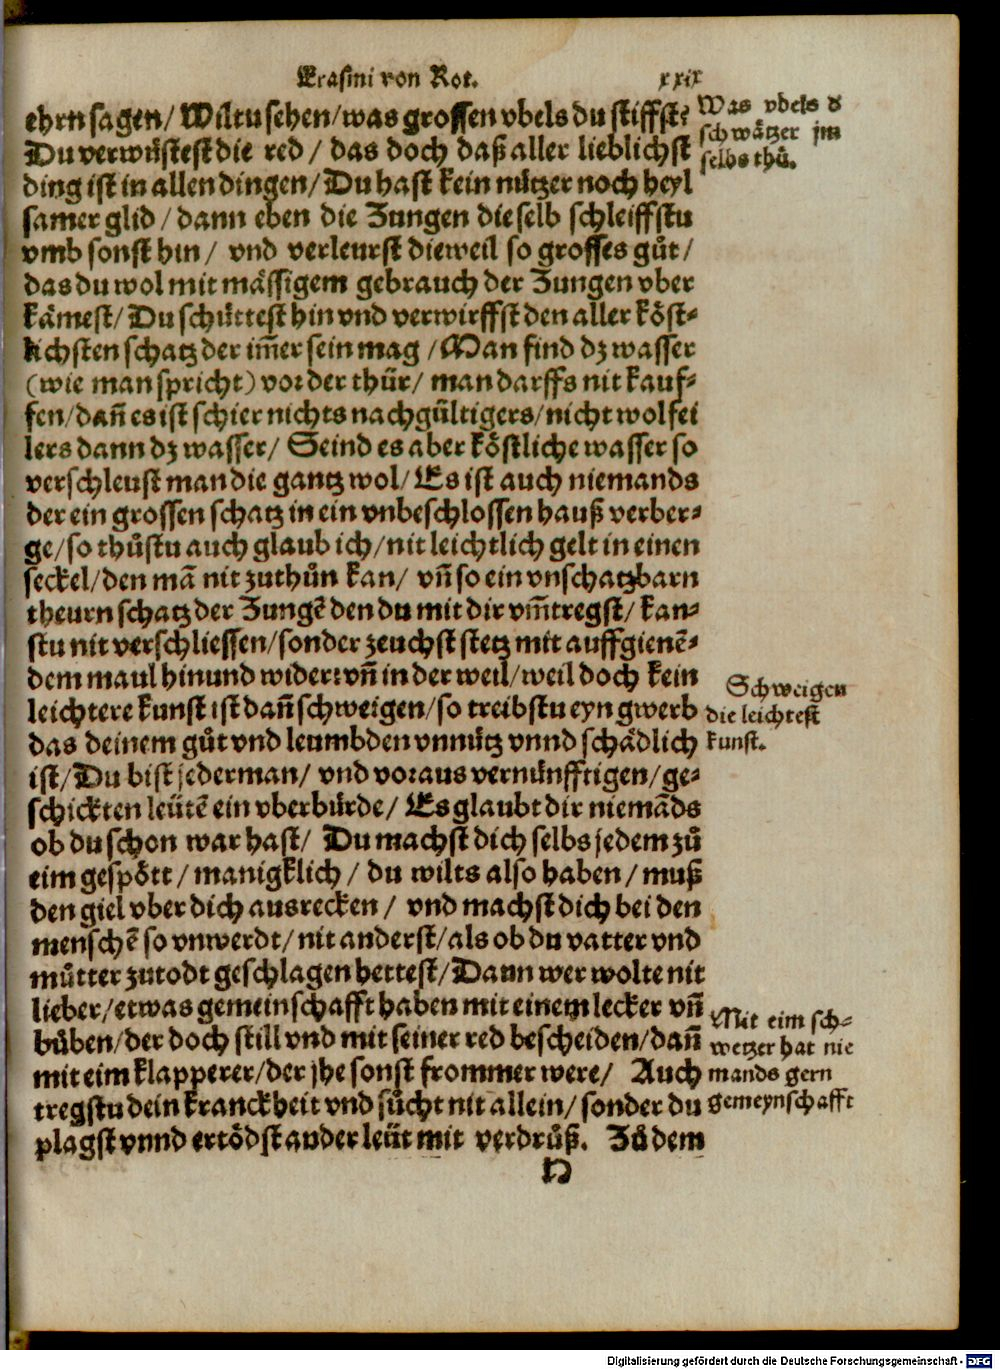 Erasmi von Rot. xxix
ehrn sagen/ Wiltu sehen/ was grossen vbels du stiffst?
Du verwüstest die red/ das doch daß aller lieblichst
ding ist in allen dingen/ Du hast kein nützer noch heyl
samer glid/ dann eben die Zungen die selb schleiffstu
vmb sonst hin/ vnd verleurst dieweil so grosses gůt/
das du wol mit mässigem gebrauch der Zungen vber
kämest/ Du schüttest hin vnd verwirffst den aller köst-
lichsten schatz der im̃er sein mag/ Man find dz wasser
(wie man spricht) vor der thür/ man darffs nit kauf-
fen/ dañ es ist schier nichts nachgültigers/ nicht wolfei
lers dann dz wasser/ Seind es aber köstliche wasser so
verschleust man die gantz wol/ Es ist auch niemands
der ein grossen schatz in ein vnbeschlossen hauß verber-
ge/ so thůstu auch glaub ich/ nit leichtlich gelt in einen
seckel/ den mã nit zuthůn kan/ vñ so ein vnschatzbarn
theurn schatz der Zungẽ den du mit dir vm̃tregst/ kan-
stu nit verschliessen/ sonder zeuchst stetz mit auffgienẽ-
dem maul hin und wider: vñ in der weil/ weil doch kein
leichtere kunst ist dañ schweigen/ so treibstu eyn gwerb
das deinem gůt vnd leumbden vnnütz vnnd schädlich
ist/ Du bist jederman/ vnd voraus vernünfftigen/ ge-
schickten leütẽ ein vberbürde/ Es glaubt dir niemãds
ob du schon war hast/ Du machst dich selbs jedem zů
eim gespött/ manigklich/ du wilts also haben/ muß
den giel vber dich ausrecken/ vnd machst dich bei den
menschẽ so vnwerdt/ nit anderst/ als ob du vatter vnd
můtter zutodt geschlagen hettest/ Dann wer wolte nit
lieber/ etwas gemeinschafft haben mit einem lecker vñ
bůben/ der doch still vnd mit seiner red bescheiden/ dañ
mit eim klapperer/ der jhe sonst frommer were/ Auch
tregstu dein kranckheit vnd sücht nit allein/ sonder du
plagst vnnd ertödst ander leüt mit verdruß. Zů dem
N
Was vbels d
schwätzer jm
selbs thů.
Schweigen
die leichtest
kunst.
Mit eim sch-
wetzer hat nie
mands gern
gemeynschafft
Digitalisierung gefördert durch die Deutsche Forschungsgemeinschaft - DFG